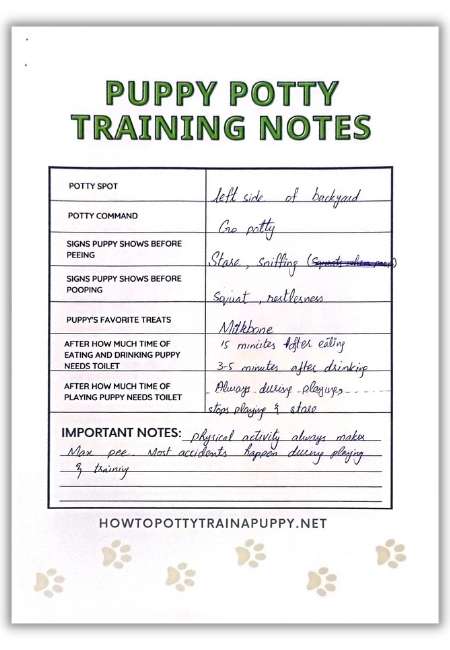 PUPPY POTTY
TRAINING NOTES
POTTY SPOT
left side of backyard
POTTY COMMAND
Go potty
SIGNS PUPPY SHOWS BEFORE
PEEING
Stare, sniffing (
SIGNS PUPPY SHOWS BEFORE
POOPING
Squat, restlessness
PUPPY'S FAVORITE TREATS
Milkbone
AFTER HOW MUCH TIME OF
EATING AND DRINKING PUPPY
NEEDS TOILET
15 minutes after eating
3-5 minutes after drinking
AFTER HOW MUCH TIME OF
PLAYING PUPPY NEEDS TOILET
Always during playing,
stops playing & stare
IMPORTANT NOTES: physical activity always makes
Max pee. Most accidents happen during playing
& training
HOWTOPOTTYTRAINAPUPPY.NET